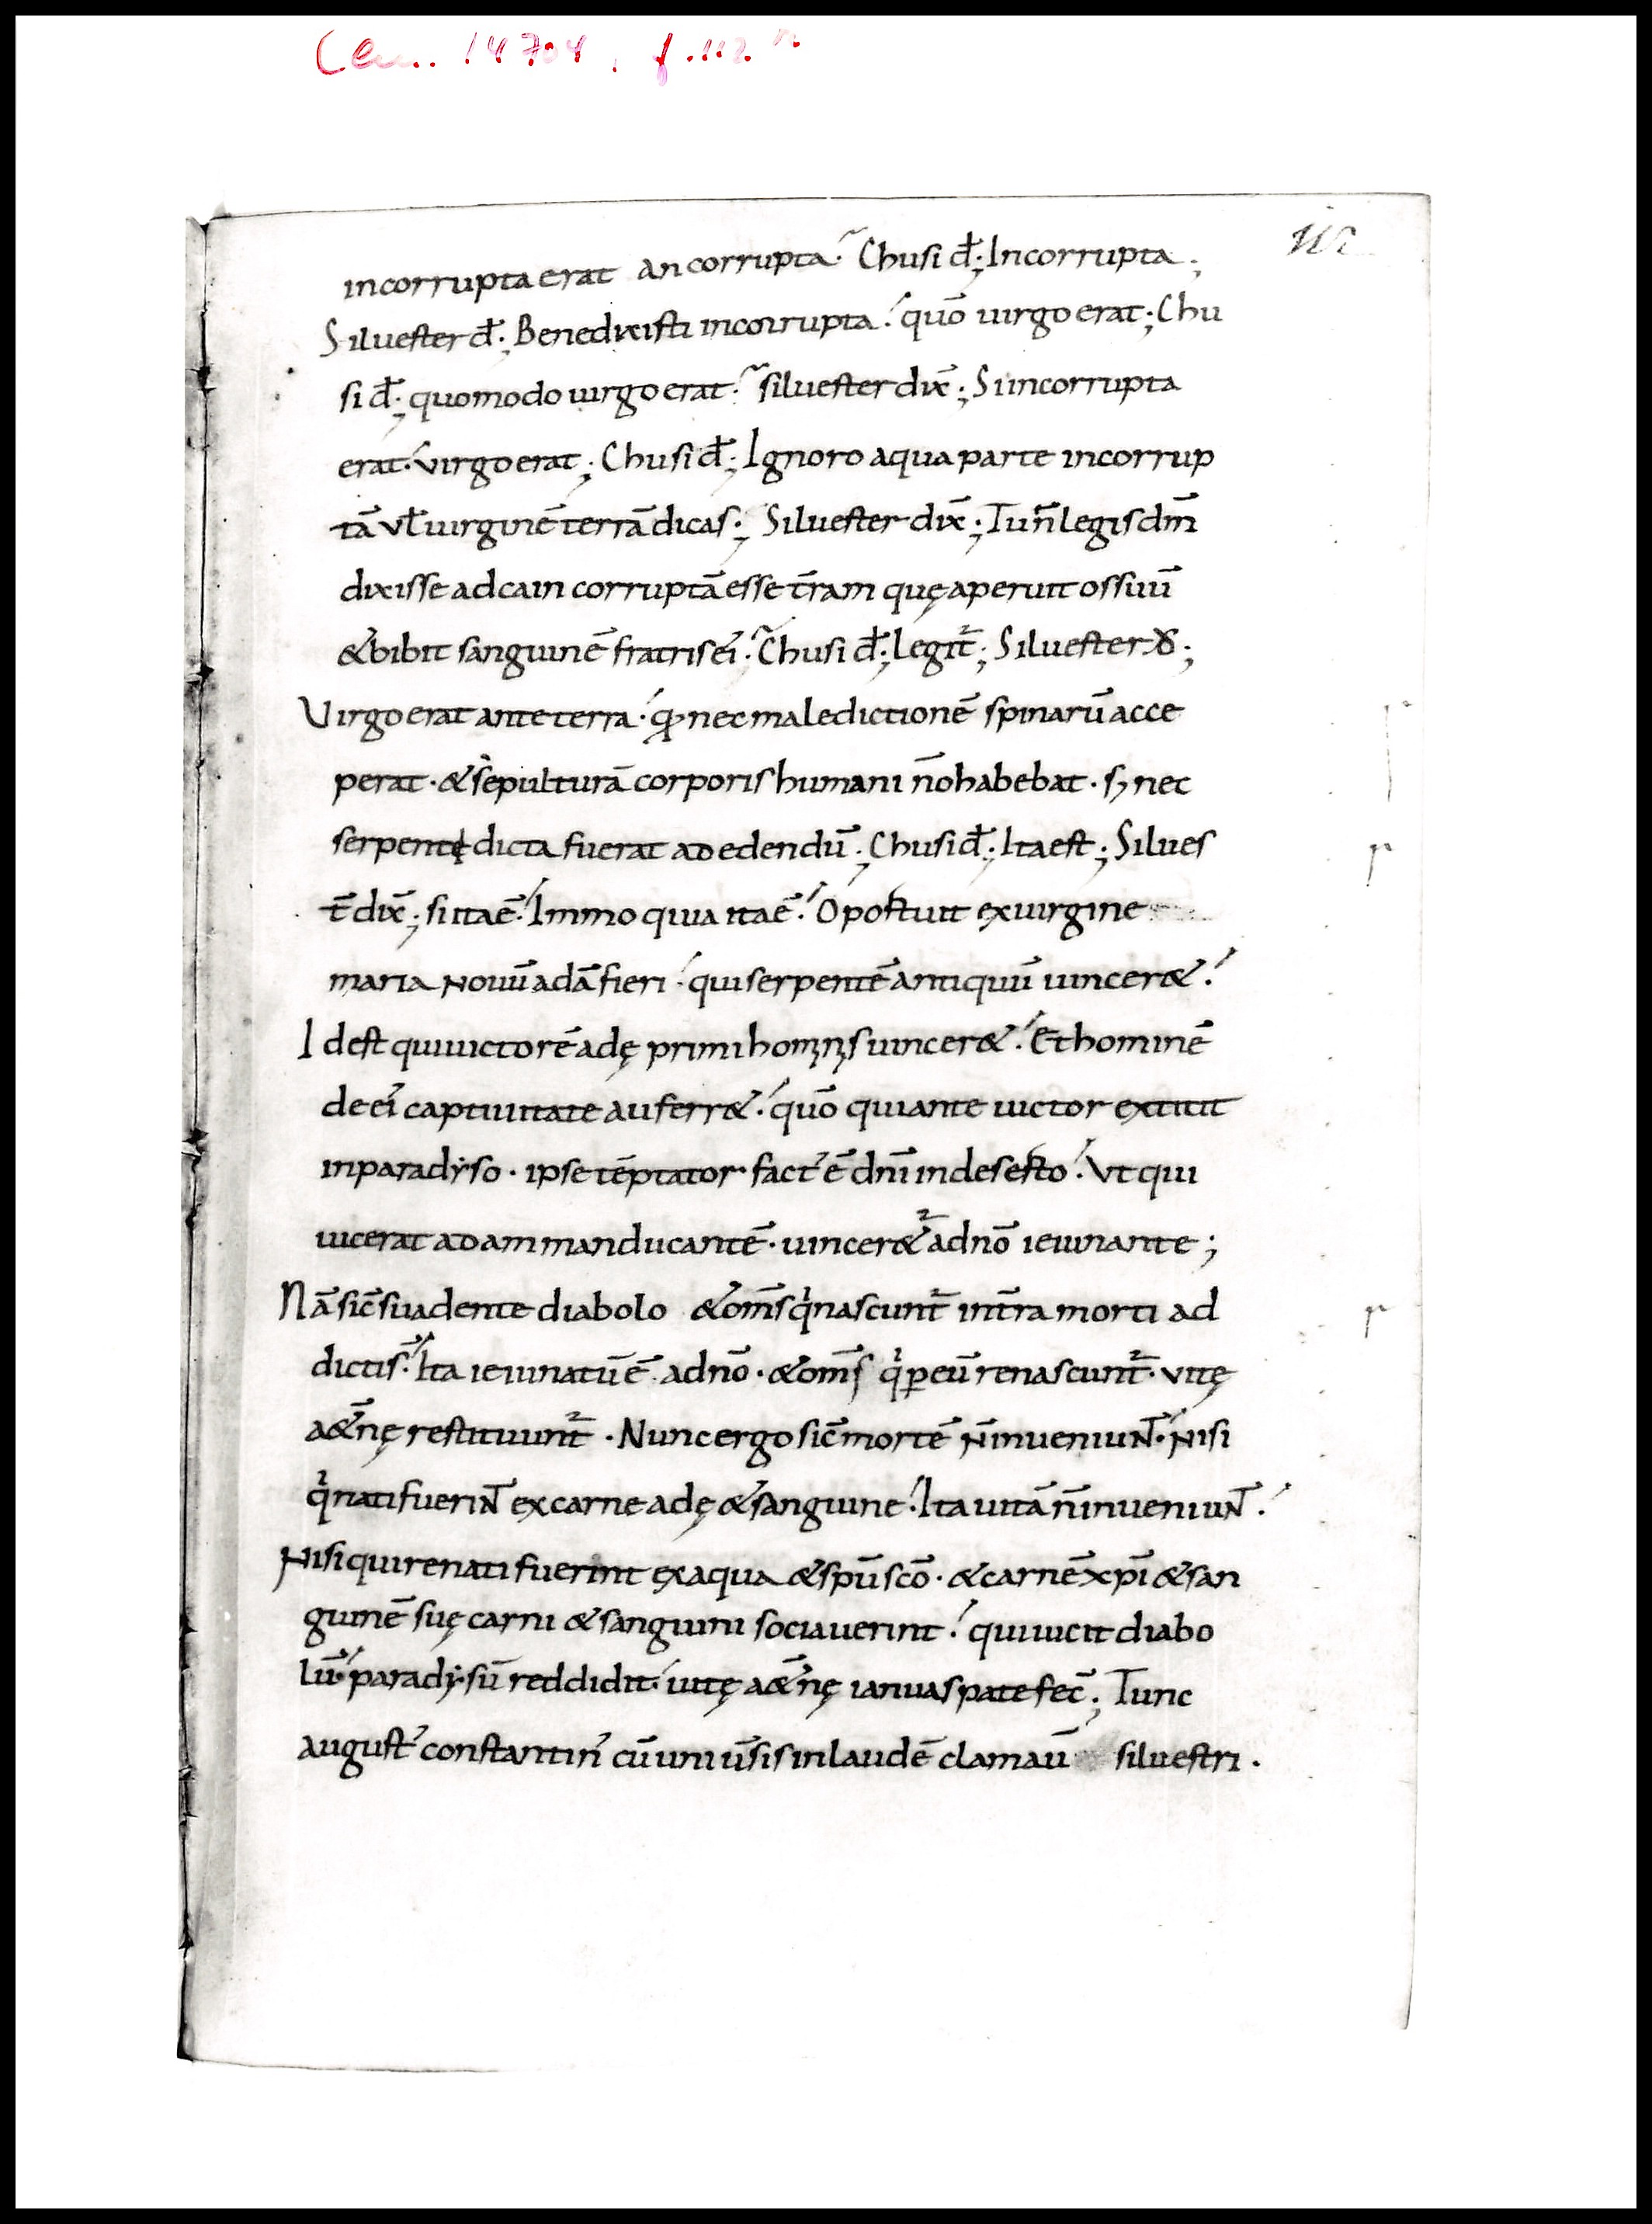 Clm. 14704, f. 112 r.
112
incorrupta erat an corrupta. Chusi đ; Incorrupta;
Siluester đ; Benedixisti incorrupta. quō uirgo erat; Chu
si đ; quomodo uirgo erat. siluester dix̄; Si incorrupta
erat. virgo erat; Chusi đ; Ignoro aqua parte incorrup
tā vł uirginē terrā dicas; Siluester dix̄; Tu n̄ legis dm̄
dixisse ad cain corruptā esse t̄ram quę aperuit os suū
& bibit sanguinē fratris ei'. Chusi đ; Legit̄; Siluester đ;
Virgo erat ante terra. q̄ nec maledictionē spinarū acce
perat. & sepulturā corporis humani n̄o habebat. sꝫ nec
serpentę dicta fuerat ad edendū; Chusi đ; Ita est; Silues
t̄ dix̄; si ita ē. Immo quia ita ē. Opostuit ex uirgine
maria nouū adā fieri. qui serpentē antiquū uincer&.
Id est qui uictorē adę primi hominis uincer&. Et hominē
de ei' captiuitate auferr&. quō qui ante uictor extitit
in paradyso. ipse tēptator fact' ē dn̄i in desesto. Vt qui
uicerat adam manducantē. uincer& a dn̄o ieiunante;
Nā sic̄ suadente diabolo & om̄s qi nascunt̄ in t̄ra morti ad
dictis. Ita ieiunatū ē a dn̄o. & om̄s qi ꝑ eū renascunt̄. vitę
a&̄nę restituunt̄. Nunc ergo sic̄ mortē n̄ inueniun̄t. Nisi
qi nati fuerint ex carne adę & sanguine. Ita uitā n̄ inueniunt.
Nisi qui renati fuerint ex aqua & spū scō. & carnē xp̄i & san
guinē suę carni & sanguini sociauerint. qui uicit diabo
lū. paradysū reddidit. uitę a&̄nę ianuas patefec̄; Tunc
august' constantin' cū uniūsis in laudē clamaū siluestri.